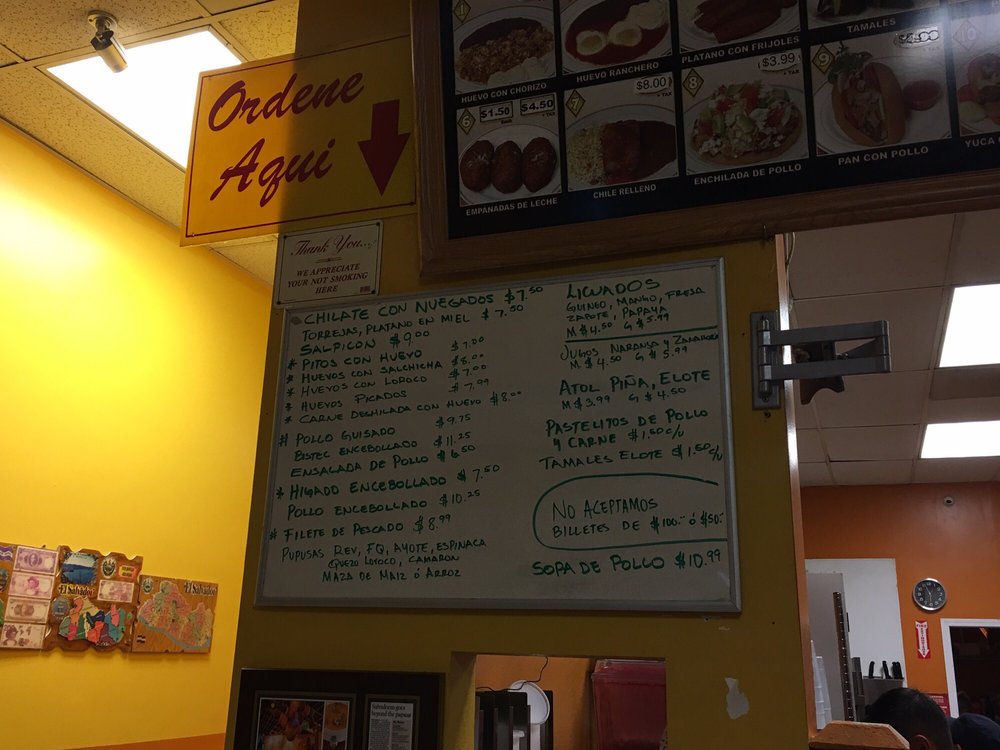 Ordene
Aqui
Thank You...
WE APPRECIATE
YOUR NOT SMOKING
HERE
HUEVO CON CHORIZO
HUEVO RANCHERO
PLATANO CON FRIJOLES
TAMALES
6
$1.50
$4.50
EMPANADAS DE LECHE
7
$8.00
+ TAX
CHILE RELLENO
8
$3.99
+ TAX
ENCHILADA DE POLLO
9
PAN CON POLLO
10
YUCA
CHILATE CON NUEGADOS $7.50
TORREJAS, PLATANO EN MIEL $7.50
SALPICON $9.00
* PITOS CON HUEVO $7.00
* HUEVOS CON SALCHICHA $8.00
* HUEVOS CON LOROCO $7.00
* HUEVOS PICADOS $7.99
* CARNE DESHILADA CON HUEVO $8.00
* POLLO GUISADO $9.75
BISTEC ENCEBOLLADO $11.25
ENSALADA DE POLLO $6.50
* HIGADO ENCEBOLLADO $7.50
POLLO ENCEBOLLADO $10.25
* FILETE DE PESCADO $8.99
PUPUSAS REV, FQ, AYOTE, ESPINACA
QUEZO LOROCO, CAMARON
MAZA DE MAIZ ó ARROZ
LICUADOS
GUINEO, MANGO, FRESA
ZAPOTE, PAPAYA
M $4.50 G $5.99
JUGOS NARANJA Y ZANAHORIA
M. $4.50 G $5.99
ATOL PIÑA, ELOTE
M $3.99 G $4.50
PASTELITOS DE POLLO
Y CARNE $1.50 c/u
TAMALES ELOTE $1.50 c/u
NO ACEPTAMOS
BILLETES DE $100.- ó $50.-
SOPA DE POLLO $10.99
El Salvador
El Salvador
Salvadorean goes
beyond the pupusa